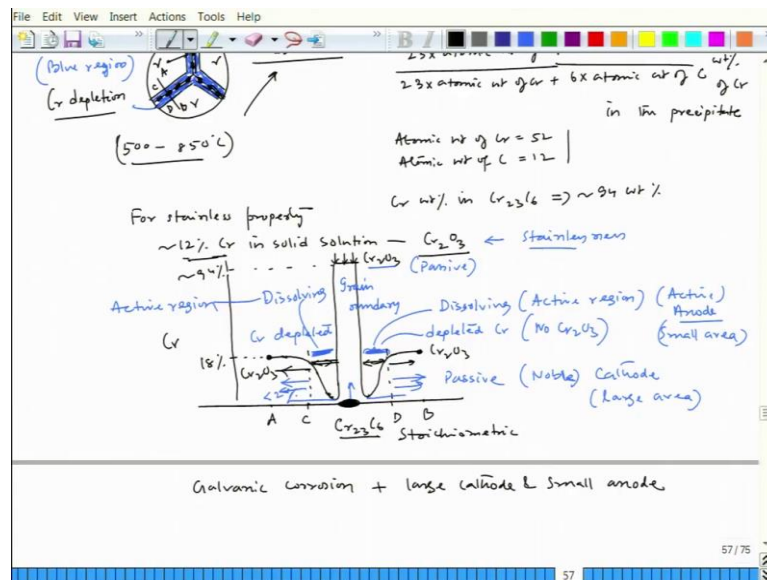 File Edit View Insert Actions Tools Help
(Blue region)
Cr depletion
A r r
C D B r
(500 - 850°C)
23 x atomic wt of Cr + 6 x atomic wt of C
wt%
of Cr
in the precipitate
Atomic wt of Cr = 52
Atomic wt of C = 12
Cr wt% in Cr23C6 => ~94 wt%
For stainless property
~12% Cr in solid solution — Cr2O3 ← Stainlessness
~94%
Cr2O3
(Passive)
Active region — Dissolving
Grain boundary
Dissolving (Active region) (Active)
Anode
(Small area)
Cr
Cr depleted
depleted Cr (No Cr2O3)
18%
Cr2O3
Cr2O3
Passive (Noble) Cathode
(Large area)
A C Cr23C6 D B
Stoichiometric
Galvanic corrosion + large cathode & small anode
57 / 75
57